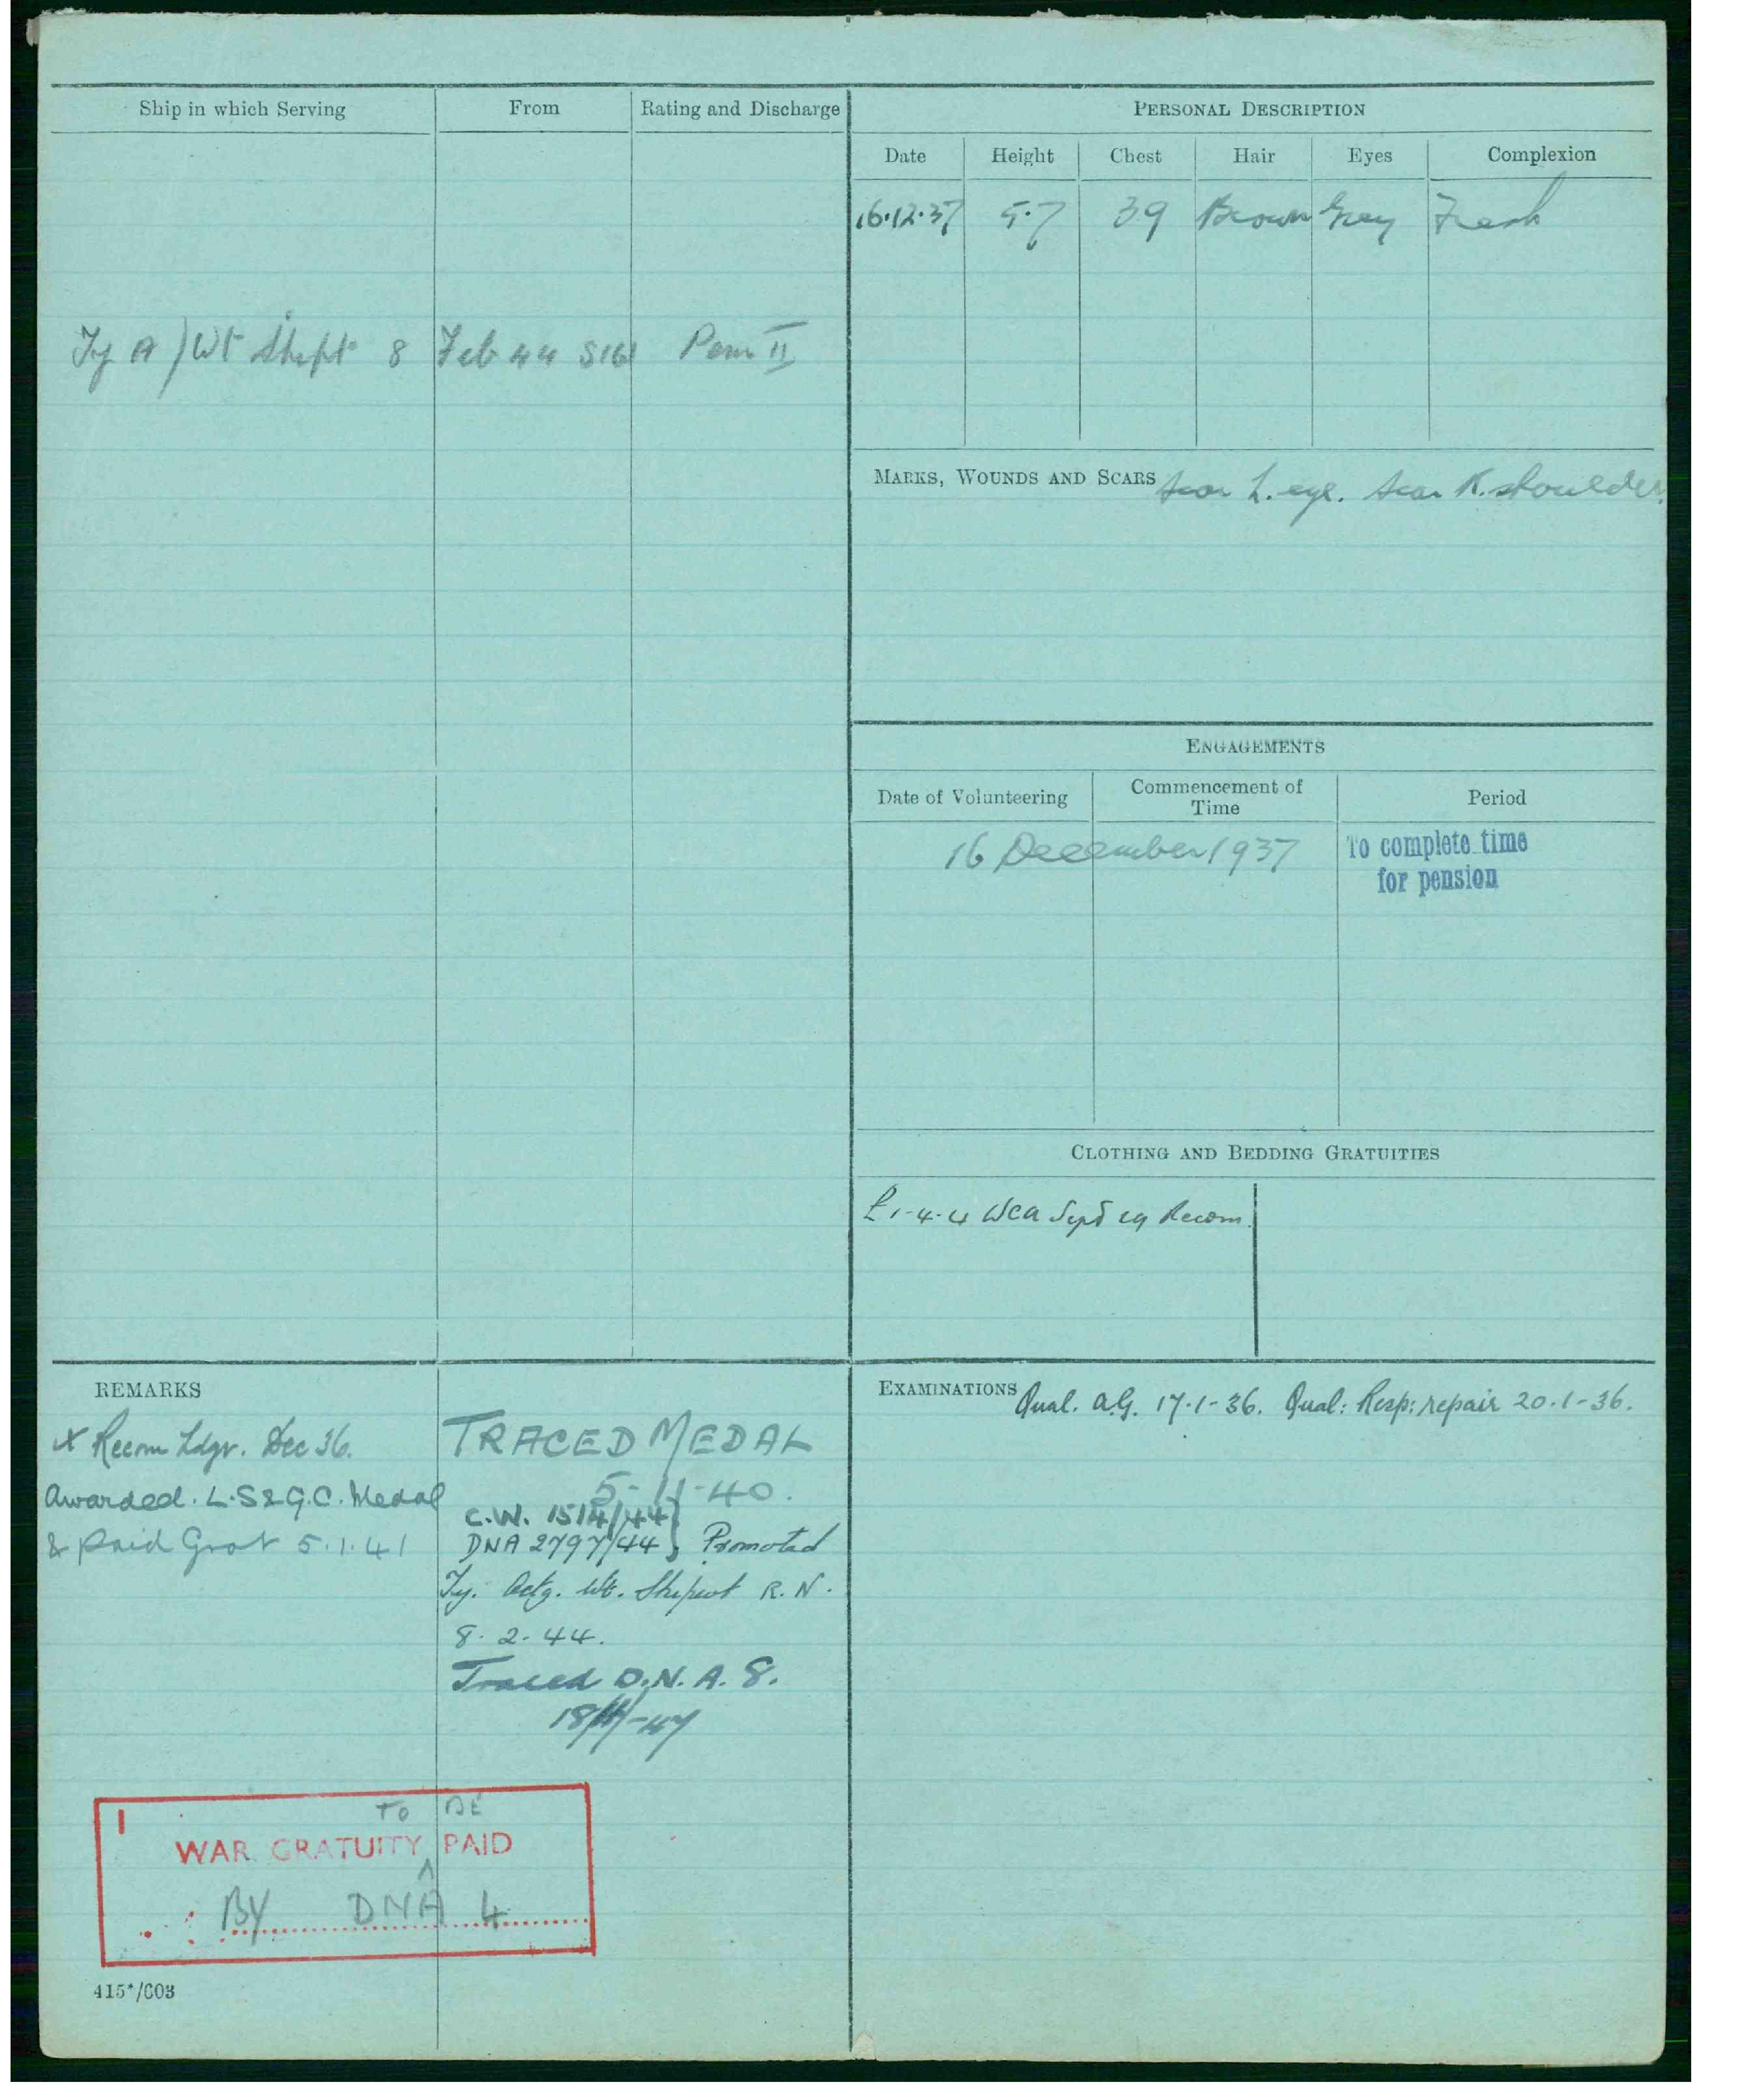 Ship in which Serving From Rating and Discharge
Ty A/Wt Shipt 8 Feb 44 Pem II
PERSONAL DESCRIPTION
Date Height Chest Hair Eyes Complexion
16.12.37 5.7 39 Brown Grey Fresh
MARKS, WOUNDS AND SCARS scar L. eye. scar R. shoulder.
ENGAGEMENTS
Date of Volunteering Commencement of Time Period
16 December 1937 To complete time
for pension
CLOTHING AND BEDDING GRATUITIES
£1-4-4 Sept Recom.
REMARKS
x Recom Ldgr. Dec 36.
Awarded. L.S & G.C. Medal
& Paid Grat 5.1.41
TRACED MEDAL
5-11-40.
C.W. 1514/44 }
DNA 2797/44 } Promoted
Ty. Actg. Wt. Shipwt R.N.
8.2.44.
Traced D.N.A.S.
EXAMINATIONS Qual. a.G. 17.1-36. Qual: Resp: repair 20.1-36.
TO BE
WAR GRATUITY ^ PAID
BY DNA 4
415*/603